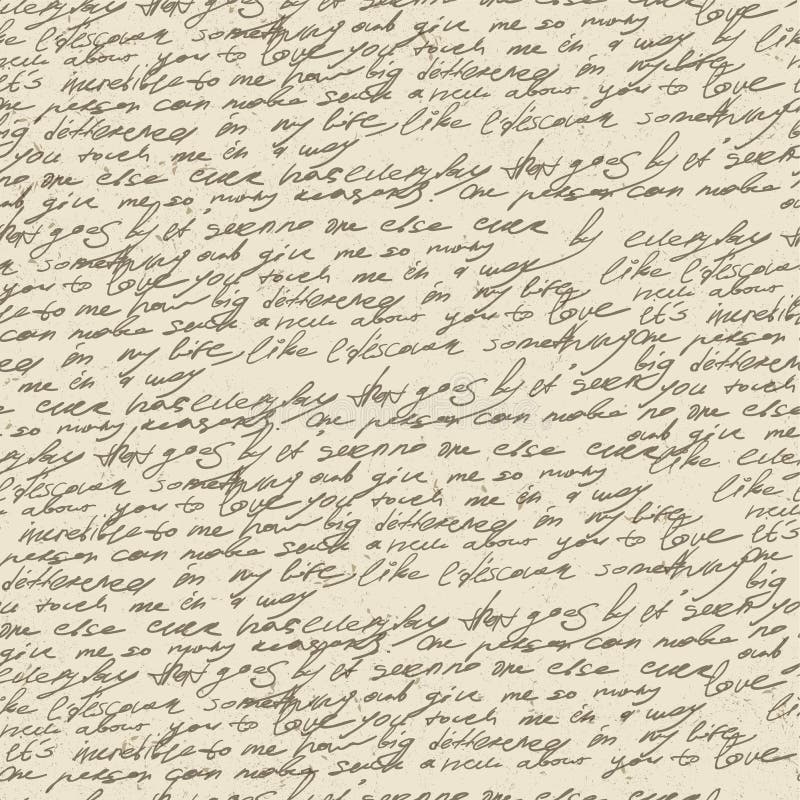 everyday that goes by it's seen no one else ever
like I discover something and give me so many like
about you to love you touch me in a way by
It's incredible to me how big difference in my life like
One person can make such a about you to love
big difference in my life, like I discover something
you touch me in a way
no one else ever has everyday that goes by it's seen
and give me so many reasons. One person can make no
that goes by it's seen no one else ever
something and give me so many by everyday that
you to love you touch me in a way like I discover
to me how big difference in my life about
can make such a about you to love It's incredible
in my life, like I discover something One person
me in a way big difference
ever has everyday that goes by it's seen you touch
so many reasons. One person can make no one else
everyday that goes by it's seen no one else ever and give me
I discover something and give me so many like
about you to love you touch me in a way like
incredible to me how big difference in my life love
person can make such a about you to love It's
difference in my life, like I discover something One
you touch me in a way big
one else ever has everyday that goes by it's seen you
give me so many reasons. One person can make no
everyday that goes by it's seen no one else ever and
like I discover something and give me so many love
about you to love you touch me in a way
It's incredible to me how big difference in my life like
One person can make such a about you to love